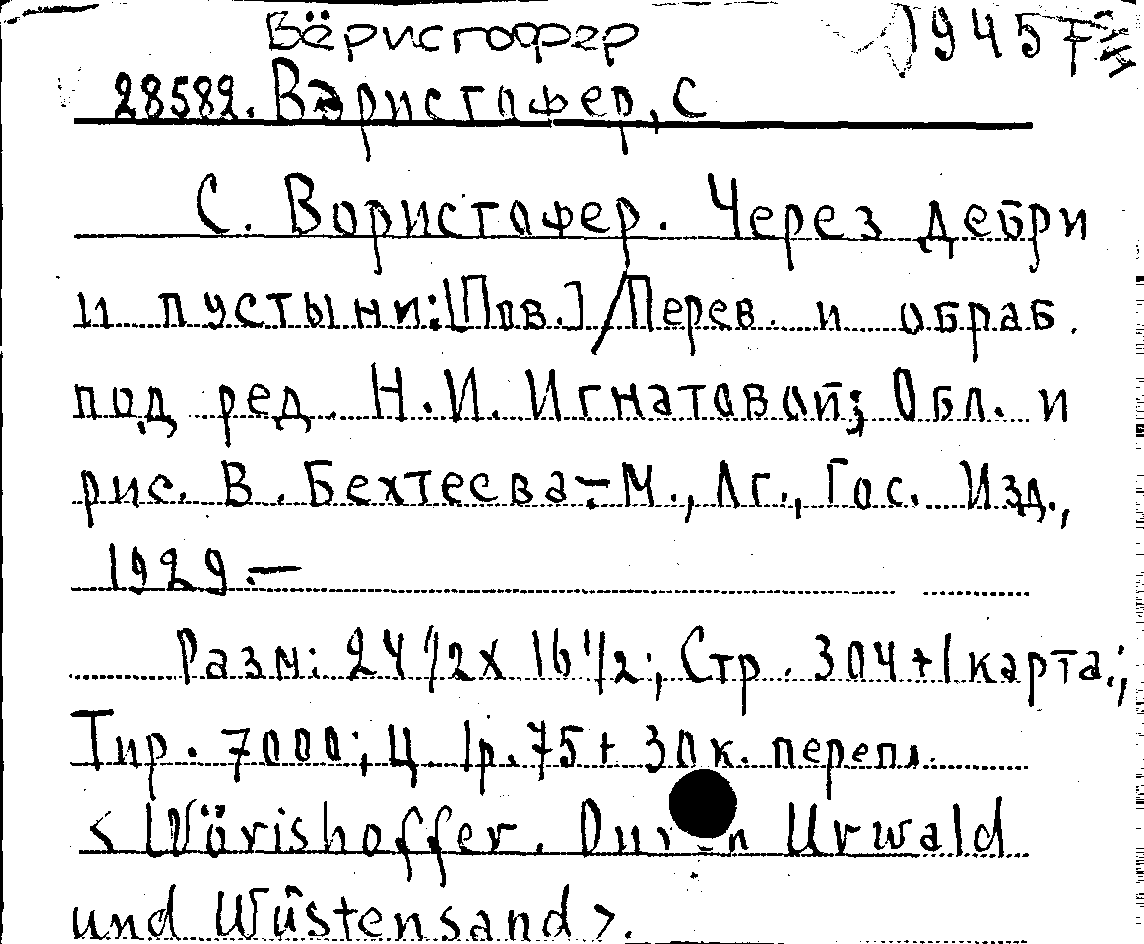 Вёрисгофер
28582. Вэристофер, С
С. Вористофер. Через дебри
и пустыни: [Пов.] / Перев. и обраб.
под ред. Н.И. Игнатовой; Обл. и
рис. В. Бехтеева. – М., Лг., Гос. Изд.,
1929. –
Разм: 24 1/2 x 16 1/2; Стр. 304 + 1 карта.;
Тир. 7000; Ц. 1р. 75 + 30 к. перепл.
< Wörishoffer. Urwald
und Wüstensand >.